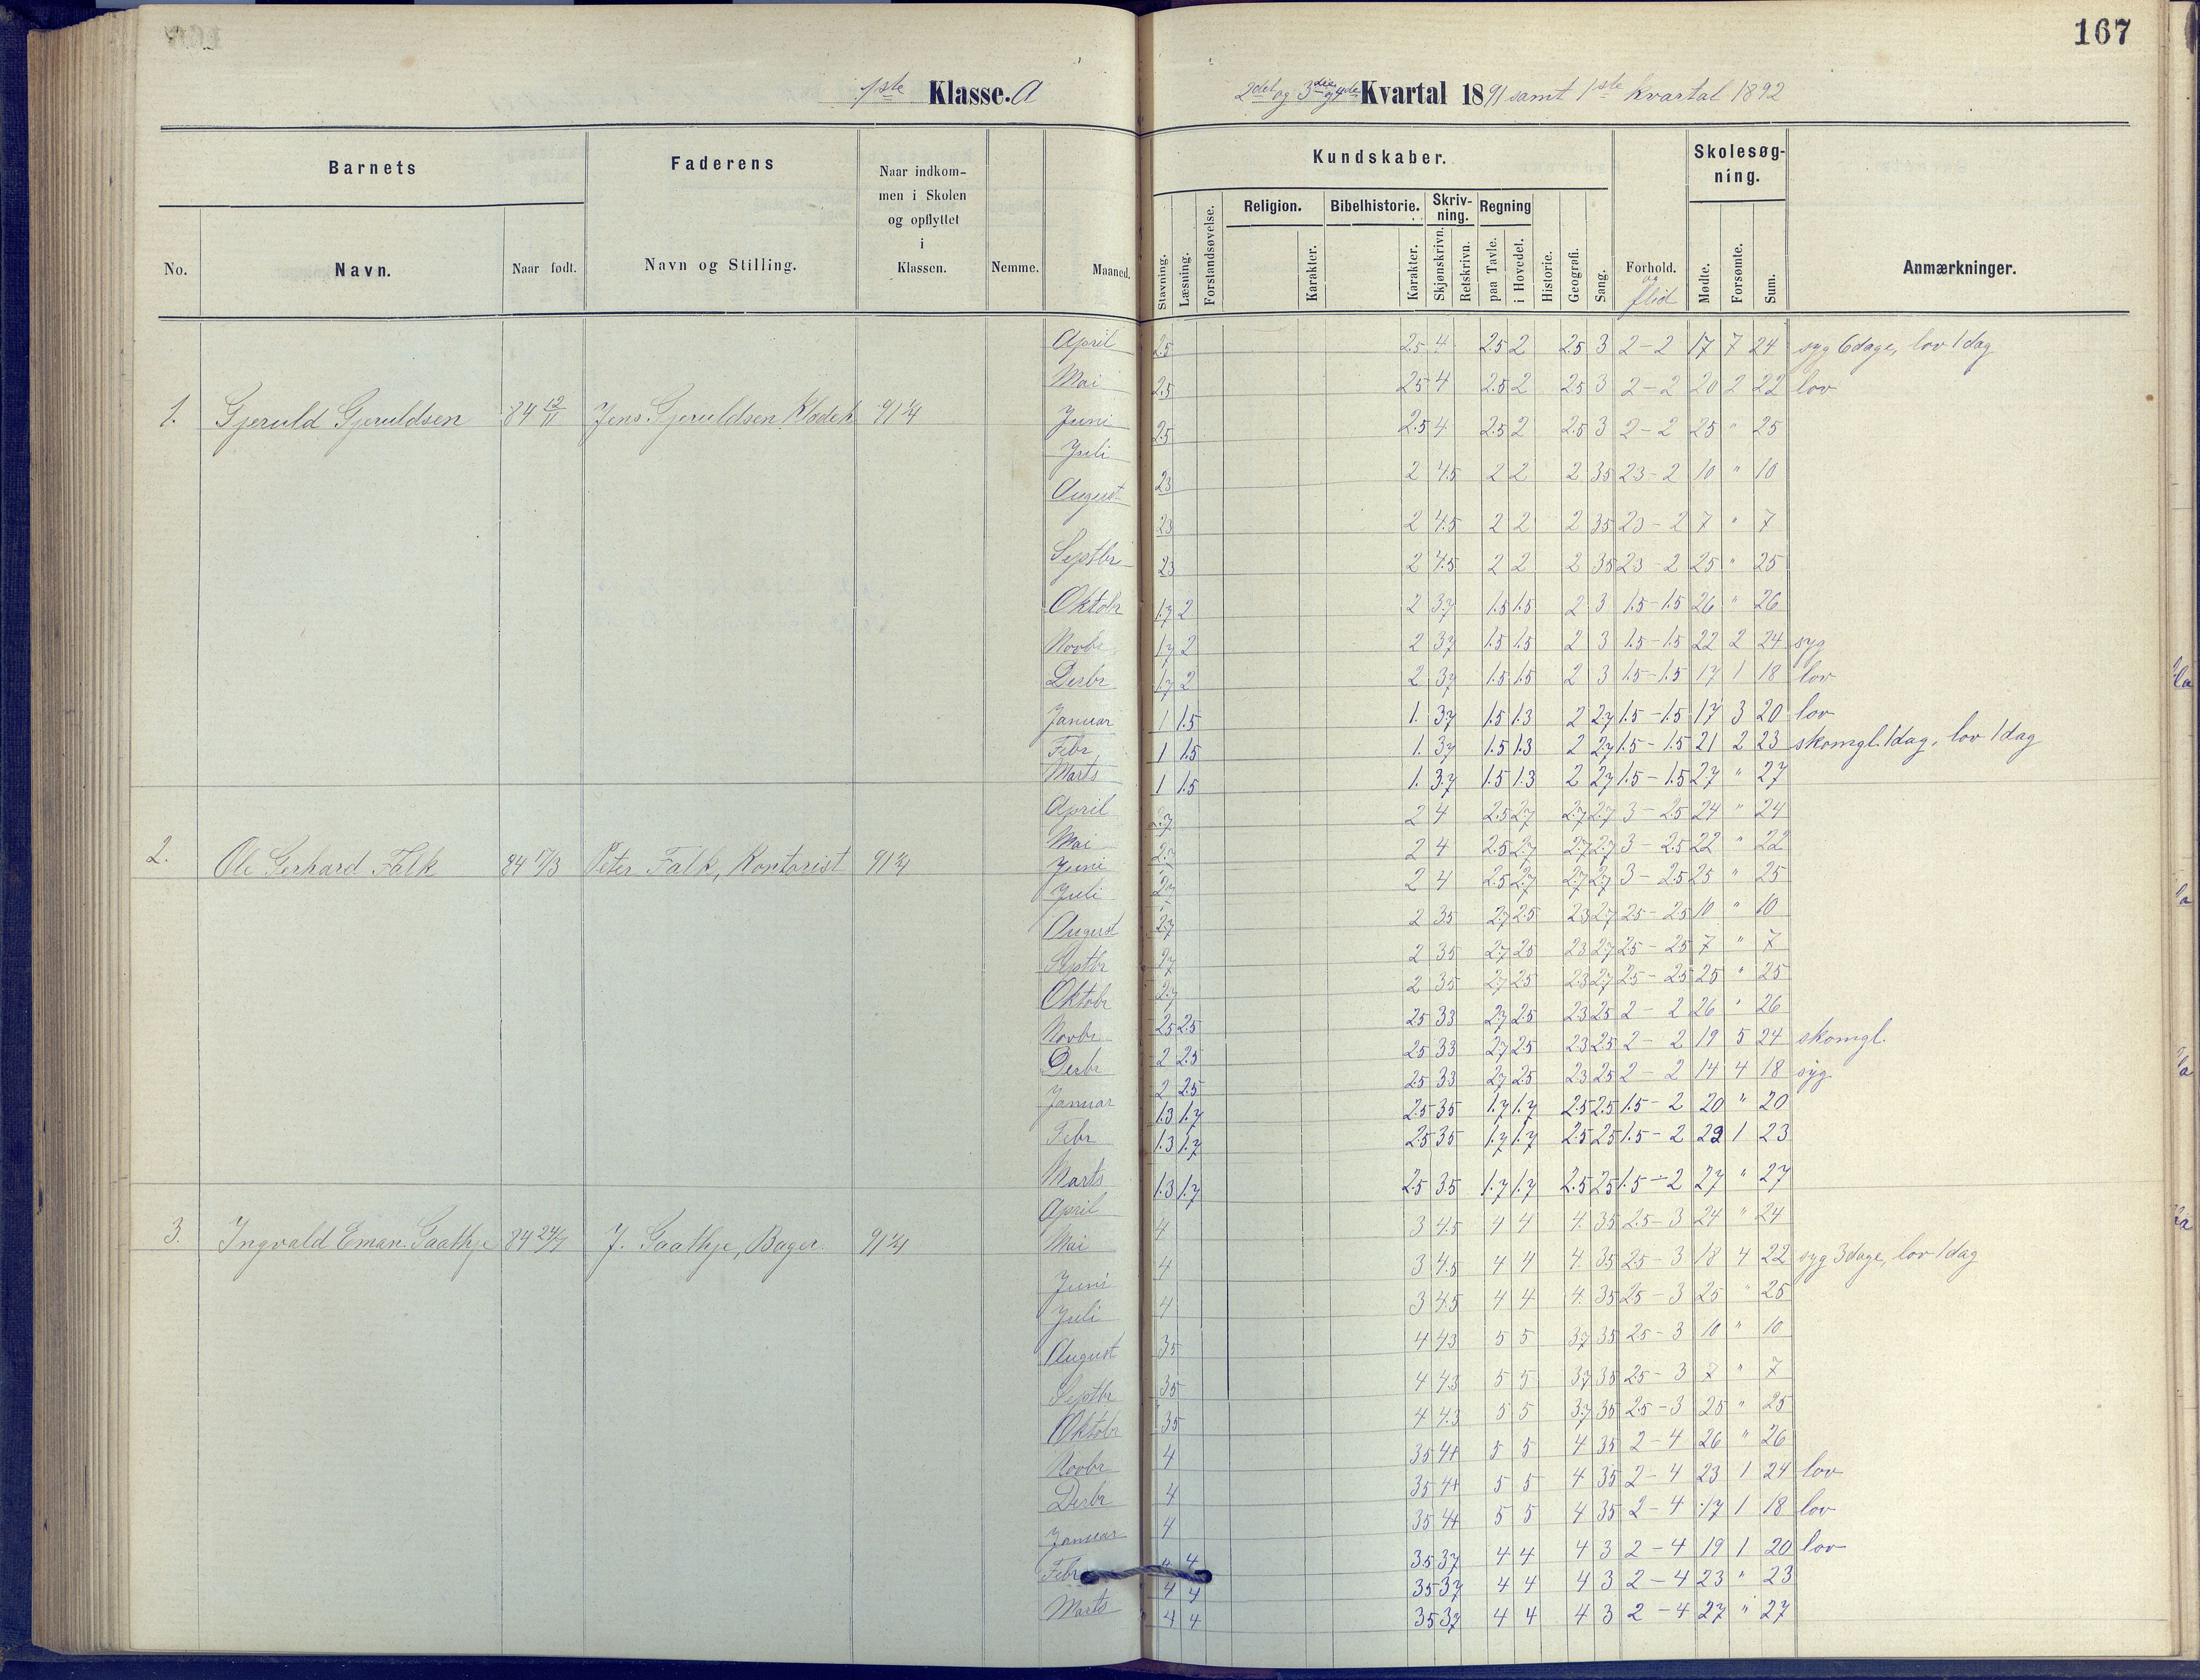 167
1ste Klasse. A
2det og 3die og 4de Kvartal 1891 samt 1ste Kvartal 1892
Barnets
Faderens
Naar indkom-
men i Skolen
og opflyttet
i
Klassen.
No.
Navn.
Naar født.
Navn og Stilling.
Nemme.
Maaned.
Kundskaber.
Skolesøg-
ning.
Religion.
Bibelhistorie.
Skriv-
ning.
Regning
Stavning.
Læsning.
Forstandsøvelse.
Karakter.
Karakter.
Skjønskrivn.
Retskrivn.
paa Tavle.
i Hovedet.
Historie.
Geografi.
Sang.
Forhold.
og
flid
Mødte.
Forsømte.
Sum.
Anmærkninger.
1. Gjeruld Gjeruldsen 84 12/11 Jens Gjeruldsen 91 2/4
April 2.5 2.5 4 2.5 2 2.5 3 2-2 17 7 24 syg 6 dage, lov 1 dag
Mai 2.5 2.5 4 2.5 2 2.5 3 2-2 20 2 22 lov
Juni 2.5 2.5 4 2.5 2 2.5 3 2-2 25 " 25
Juli 23 2 4.5 2 2 2 35 23-2 10 " 10
August 23 2 4.5 2 2 2 35 23-2 7 " 7
Septbr 23 2 4.5 2 2 2 35 23-2 25 " 25
Oktobr 1.7 2 2 37 1.5 1.5 2 3 1.5-1.5 26 " 26
Novbr 1.7 2 2 37 1.5 1.5 2 3 1.5-1.5 22 2 24 syg
Desbr 1.7 2 2 37 1.5 1.5 2 3 1.5-1.5 17 1 18 lov
Januar 1 1.5 1. 37 1.5 1.3 2 27 1.5-1.5 17 3 20 lov
Febr 1 1.5 1. 37 1.5 1.3 2 27 1.5-1.5 21 2 23 skomgl. 1 dag, lov 1 dag
Marts 1 1.5 1. 3.7 1.5 1.3 2 27 1.5-1.5 27 " 27
2. Ole Gerhard Falk 84 17/3 Peter Falk, Kontorist 91 2/4
April 2.7 2 4 2.5 27 27 27 3-25 24 " 24
Mai 2.7 2 4 2.5 27 27 27 3-25 22 " 22
Juni 27 2 4 2.5 27 27 27 3-25 25 " 25
Juli 27 2 35 27 25 23 27 25-25 10 " 10
August 27 2 35 27 25 23 27 25-25 7 " 7
Septbr 27 2 35 27 25 23 27 25-25 25 " 25
Oktobr 25 25 25 33 27 25 23 25 2-2 26 " 26
Novbr 2 25 25 33 27 25 23 25 2-2 19 5 24 skomgl.
Desbr 2 25 25 33 27 25 23 25 2-2 14 4 18 syg
Januar 1.3 1.7 25 35 1.7 1.7 25 25 1.5-2 20 " 20
Febr 1.3 1.7 25 35 1.7 1.7 25 25 1.5-2 22 1 23
Marts 1.3 1.7 25 35 1.7 1.7 2.5 25 1.5-2 27 " 27
3. Ingvald Eman. Gaathje 84 24/7 J. Gaathje, Bager. 91 2/4
April 4 3 4.5 4 4 4. 35 25-3 24 " 24
Mai 4 3 4.5 4 4 4. 35 25-3 18 4 22 syg 3 dage, lov 1 dag
Juni 4 3 4.5 4 4 4. 35 25-3 25 " 25
Juli 35 4 43 5 5 37 35 25-3 10 " 10
August 35 4 43 5 5 37 35 25-3 7 " 7
Septbr 35 4 43 5 5 37 35 25-3 25 " 25
Oktobr 4 35 44 5 5 4 35 2-4 26 " 26
Novbr 4 35 44 5 5 4 35 2-4 23 1 24 lov
Desbr 4 35 44 5 5 4 35 2-4 17 1 18 lov
Januar 4 4 35 37 4 4 4 3 2-4 19 1 20 lov
Febr 4 4 35 37 4 4 4 3 2-4 23 " 23
Marts 4 4 35 37 4 4 4 3 2-4 27 " 27